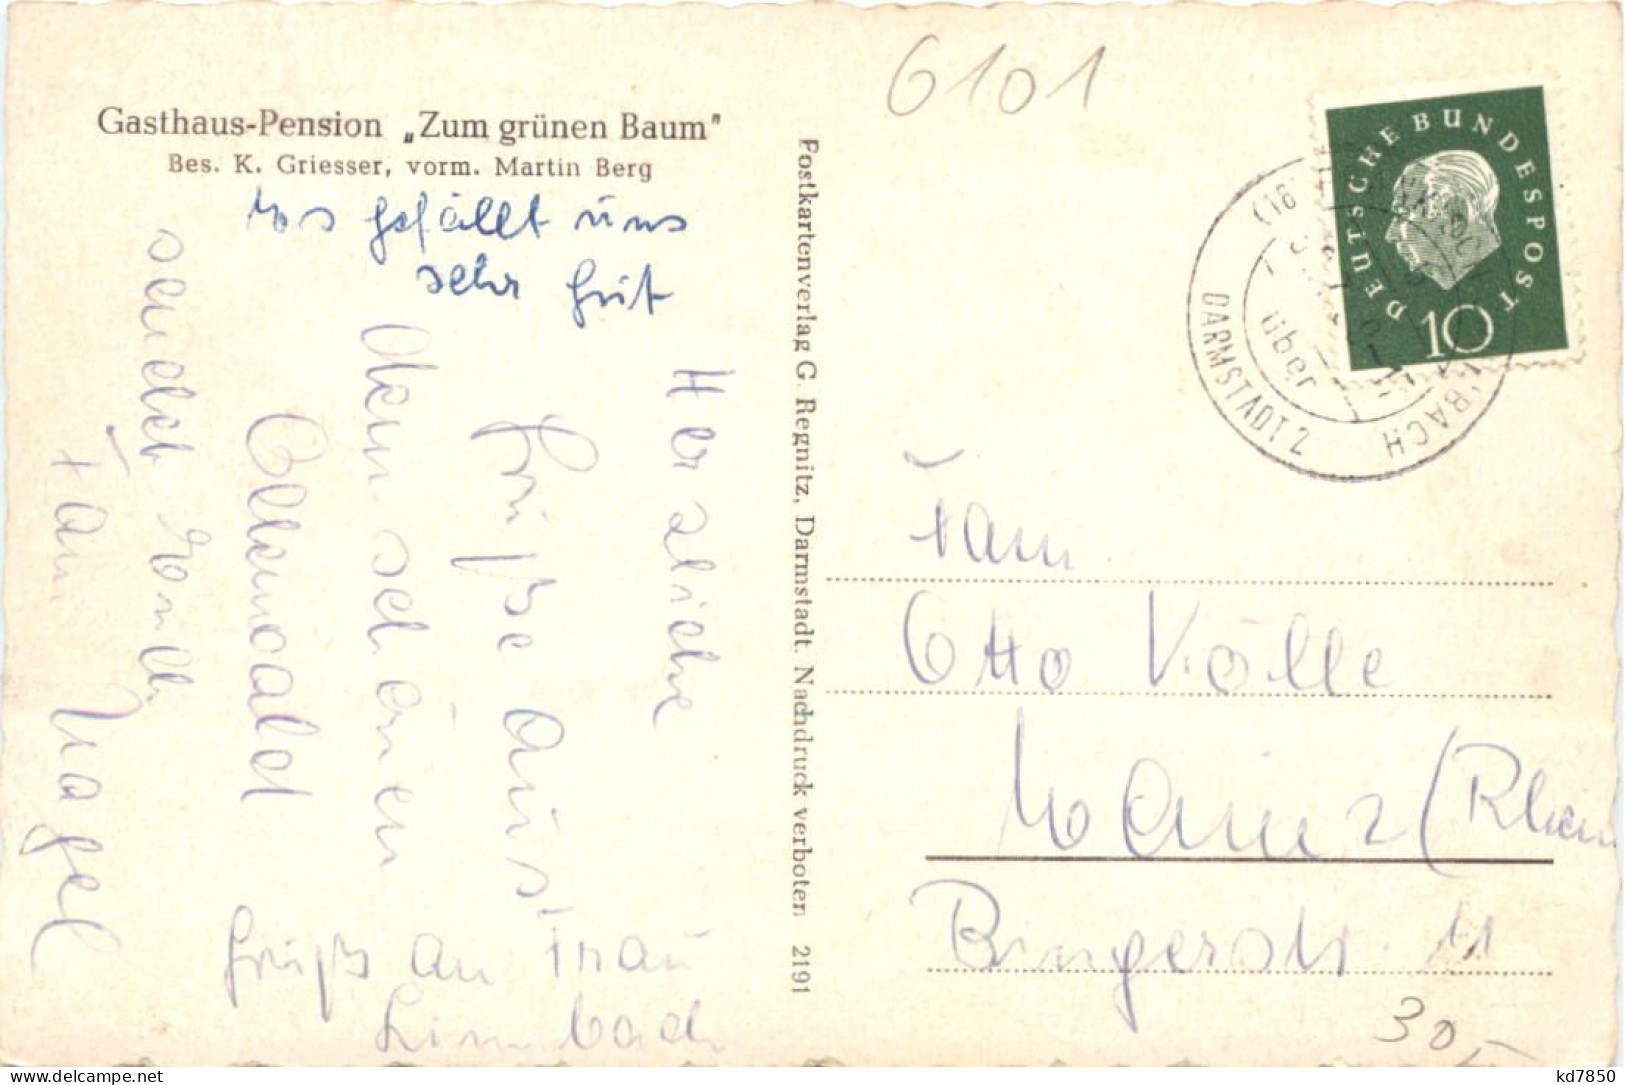 Gasthaus-Pension „Zum grünen Baum"
Bes. K. Griesser, vorm. Martin Berg
es gefällt uns
sehr gut
Herzliche
Grüße aus
dem schönen
Odenwald
sendet Euch
Fam
Nagel
Gruß an Frau
Limbach
Postkartenverlag G. Regnitz, Darmstadt. Nachdruck verboten 2191
6101
DEUTSCHE BUNDESPOST
10
(16
über
DARMSTADT 2
BACH
Fam
Otto Kölle
Mainz (Rhein
Bingerstr. 11
30,-
kd7850